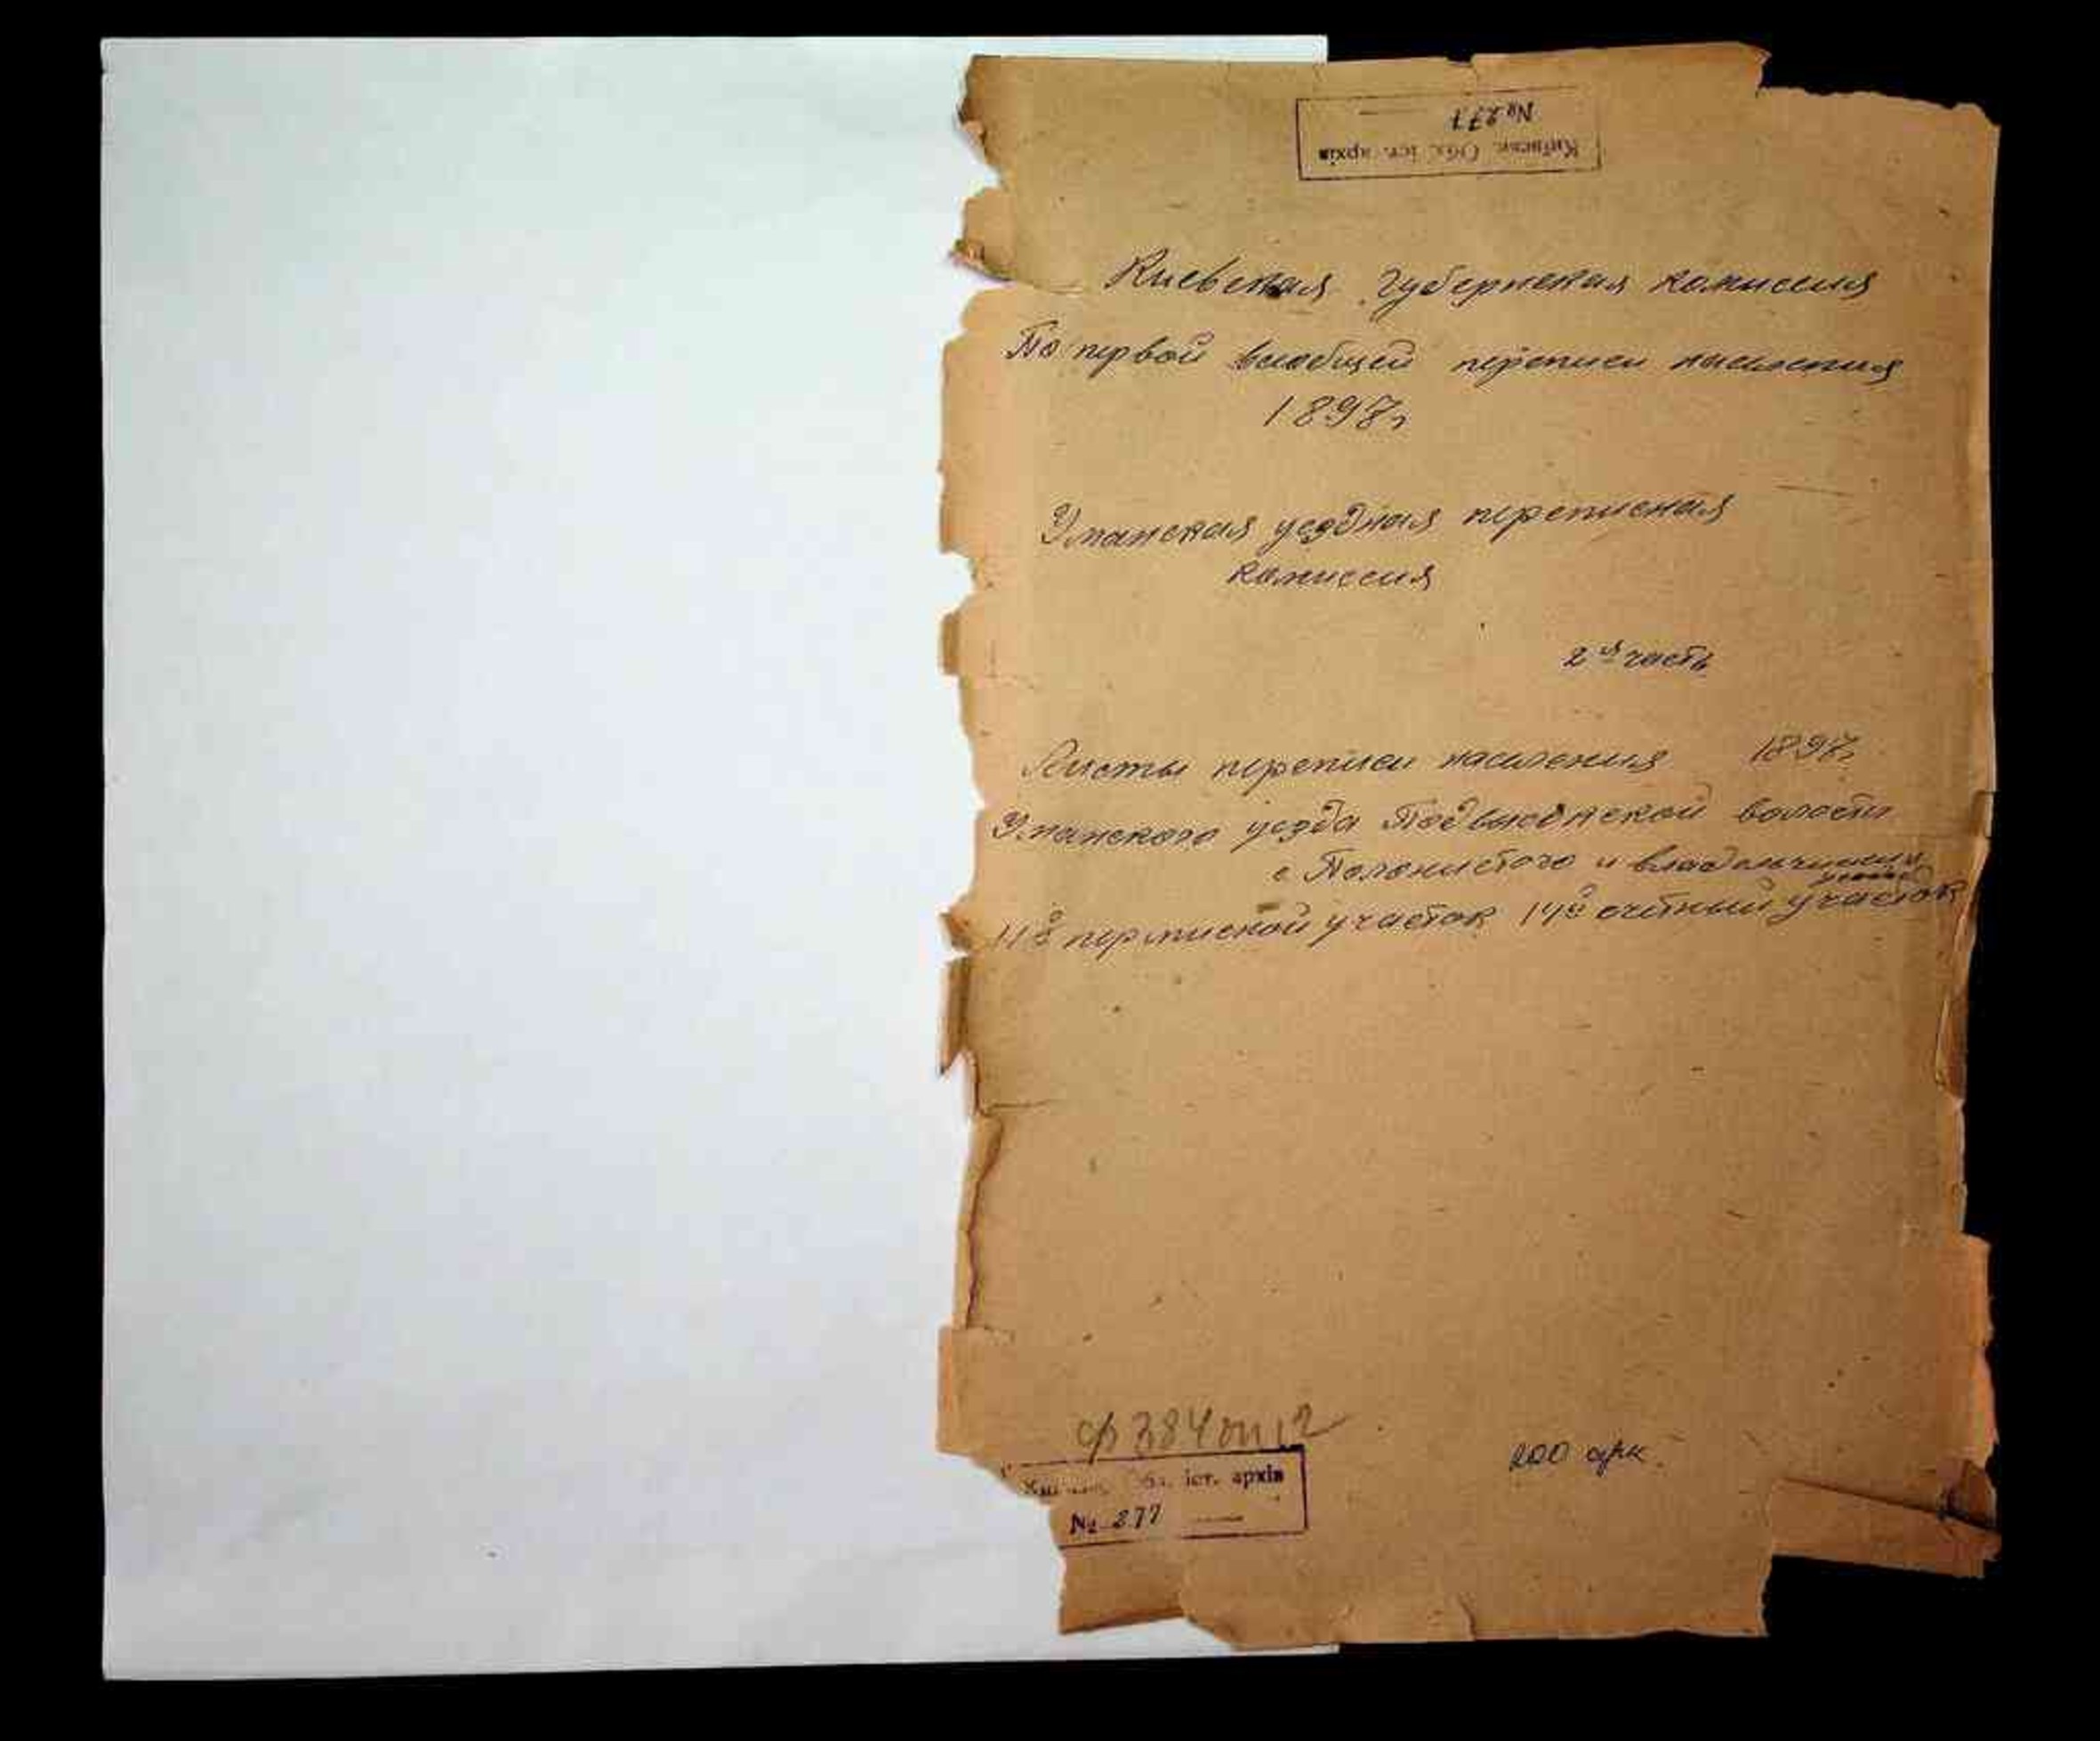 Київськ. Обл. іст. архів
№ 277
Киевская губернская комиссия
По первой всеобщей переписи населения
1897г
Уманская уездная переписная
комиссия
2ая часть
Листы переписи населения 1897г
Уманского уезда Подвысоцкой волости
с Полонистого и
переписной участок 14й счетный участок
ф 384 оп 12
Обл. іст. архів
№ 277
200 арк.